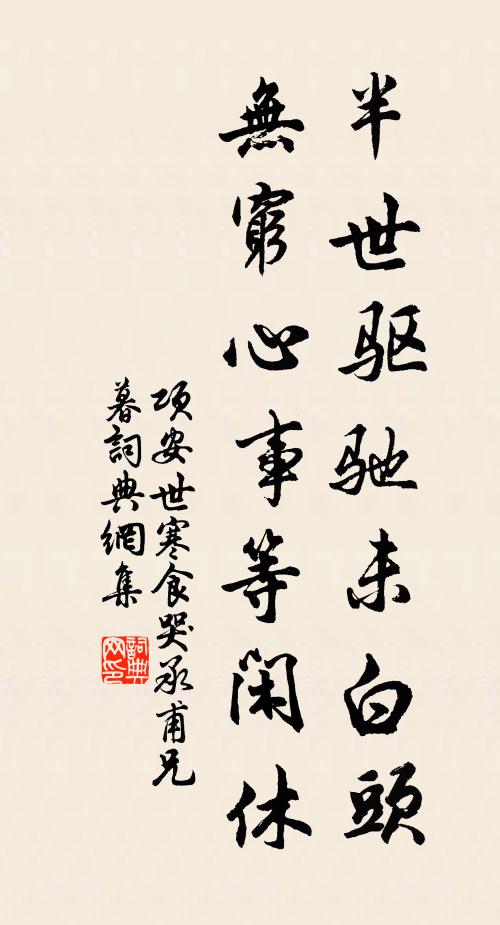 半世驱驰未白頭
無窮心事等閑休
项安世寒食哭承甫兄
暮詞典網集
詞典网印